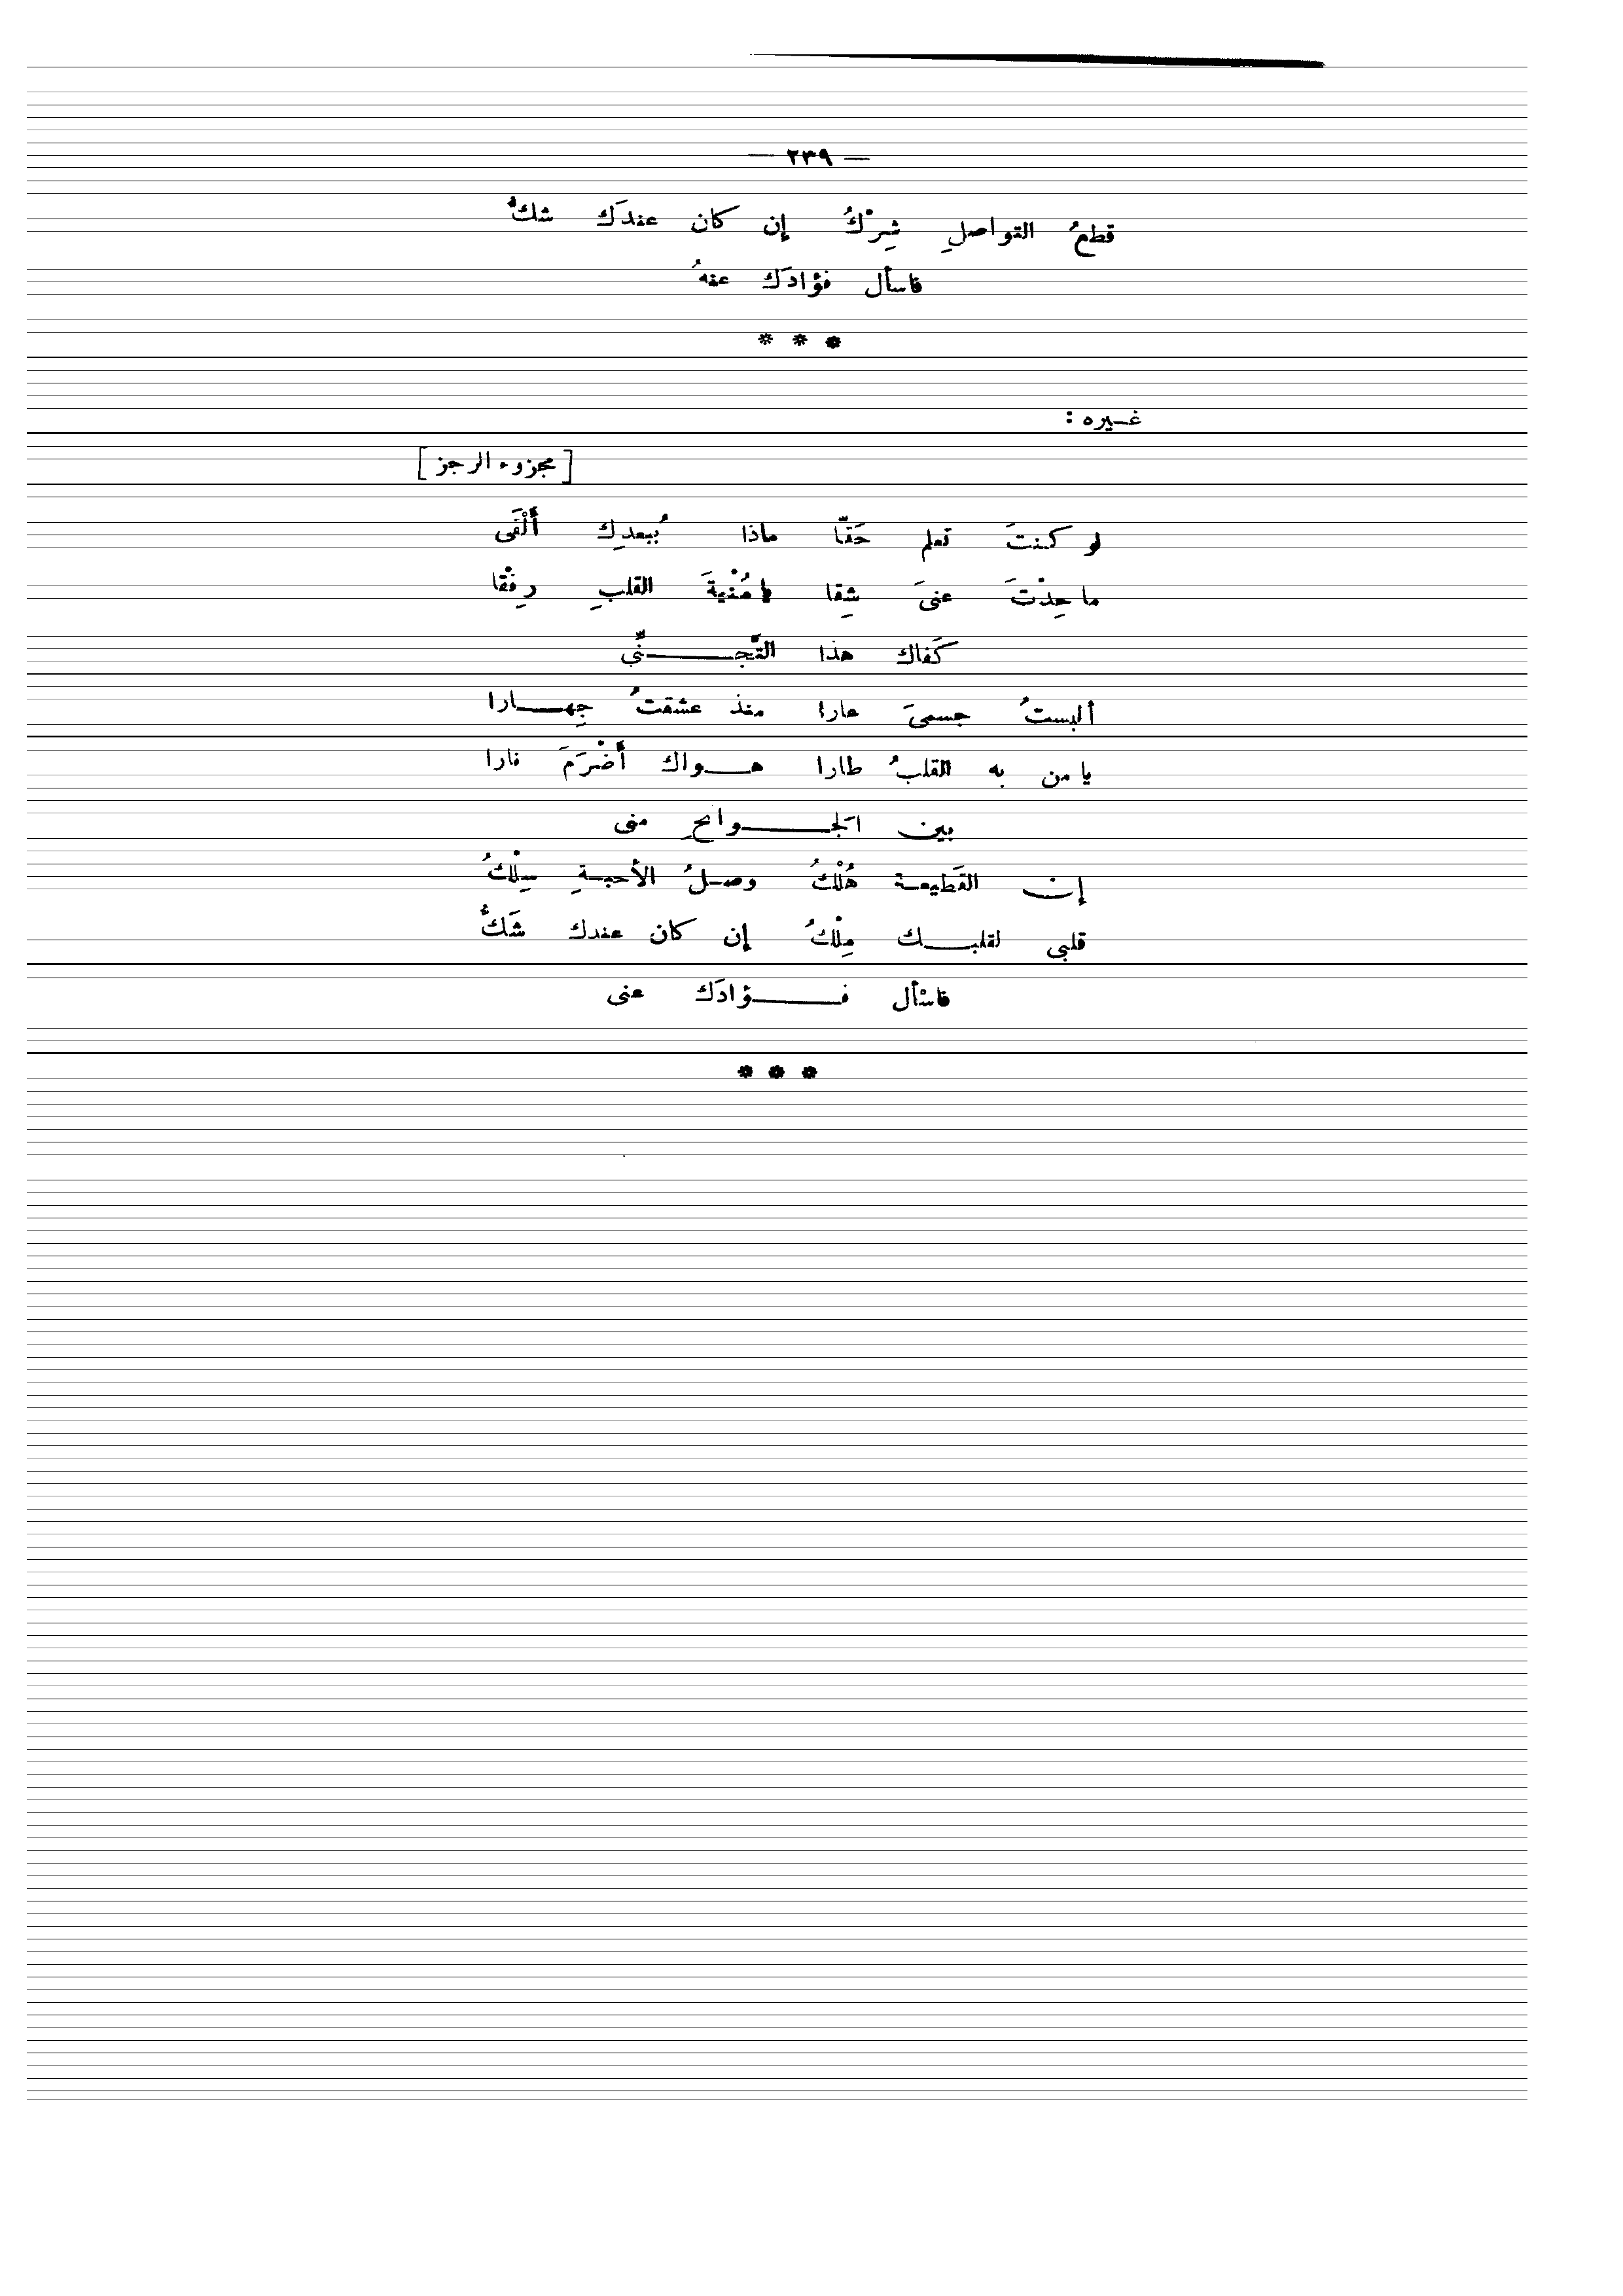 — ٢٣٩ —
قطعُ التواصلِ شِرْكُ إن كان عندَك شكُّ
فاسأل فؤادَك عنهُ
* * *
غيره :
[ مجزوء الرجز ]
لو كنتَ تعلم حَقّا ماذا بُبعدِك أَلْقَى
ما حِدْتَ عنىَ شِقا يا مُنْيةَ القلبِ رِفْقا
كَفاك هذا التَّجـنِّي
ألبستُ جسمىَ عارا منذ عشقتُ جِهـارا
يا من به القلبُ طارا هـواك أَضْرَمَ نارا
بين الجَـوانحِ منى
إن القَطيعـة هُلْكُ وصـلُ الأحبـةِ سِلْكُ
قلبى لقلبـك مِلْكُ إن كان عندك شَكُّ
فاسْأل فـؤادَك عنى
* * *